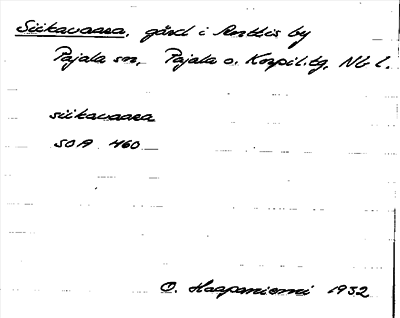 Siikavaara, gård i Anttis by
Pajala sn, Pajala o. Korpil. tg, Nb l.
siikavaara
SOA 460
O. Haapaniemi 1932